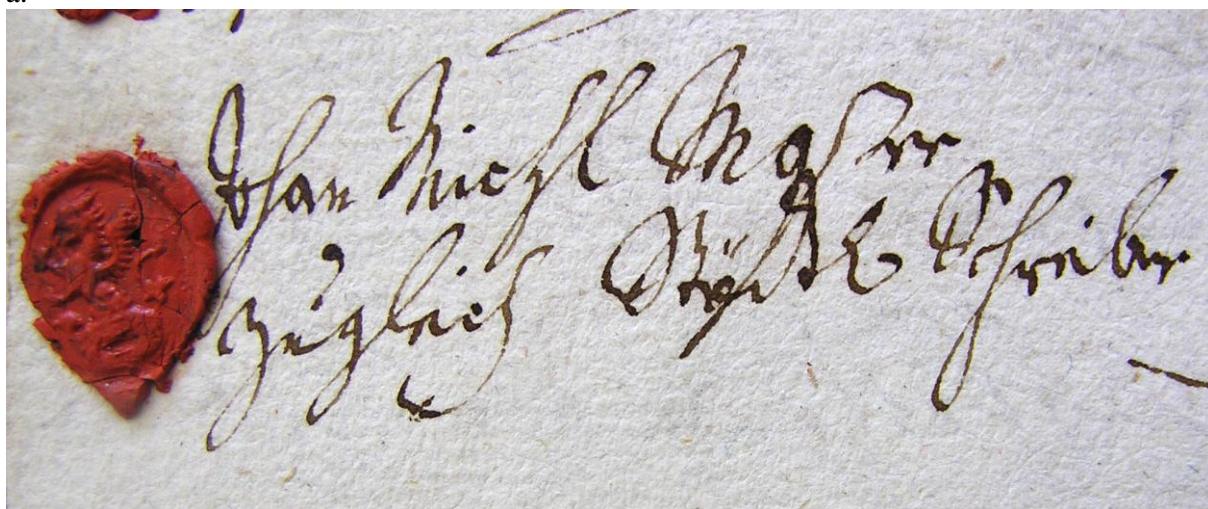 Johan Michl Moser
zugleich Schreiber